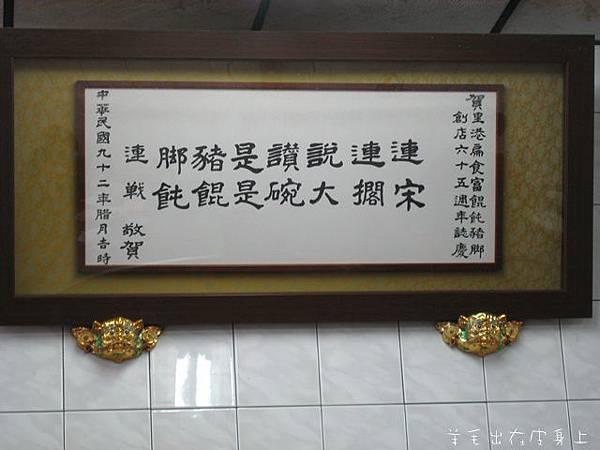 賀里港扁食富餛飩豬脚
創店六十五週年誌慶
連連說讚是豬脚
宋擱大碗是餛飩
連戰 敬賀
中華民國九十二年腊月吉時
羊毛出在皮身上